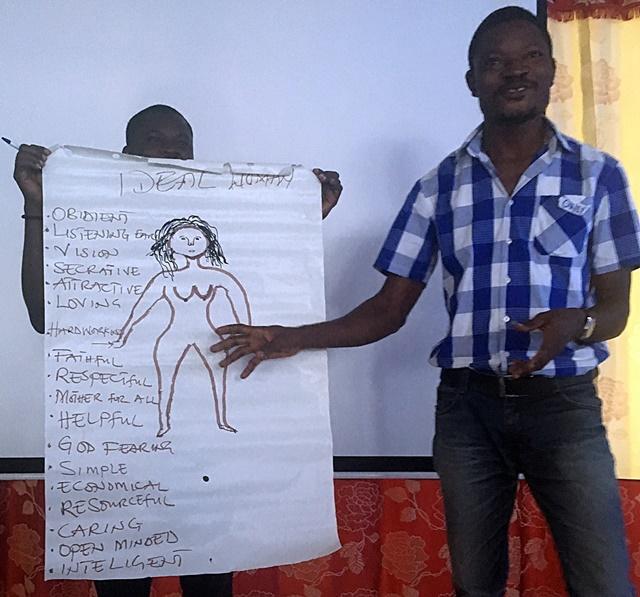 IDEAL WOMAN
• OBIDIENT
• LISTENING EAR
• VISION
• SECRATIVE
• ATTRACTIVE
• LOVING
HARDWORKING
• FAITHFUL
• RESPECTFUL
• MOTHER FOR ALL
• HELPFUL
• GOD FEARING
• SIMPLE
• ECONOMICAL
• RESOURCEFUL
• CARING
• OPEN MINDED
• INTELIGENT